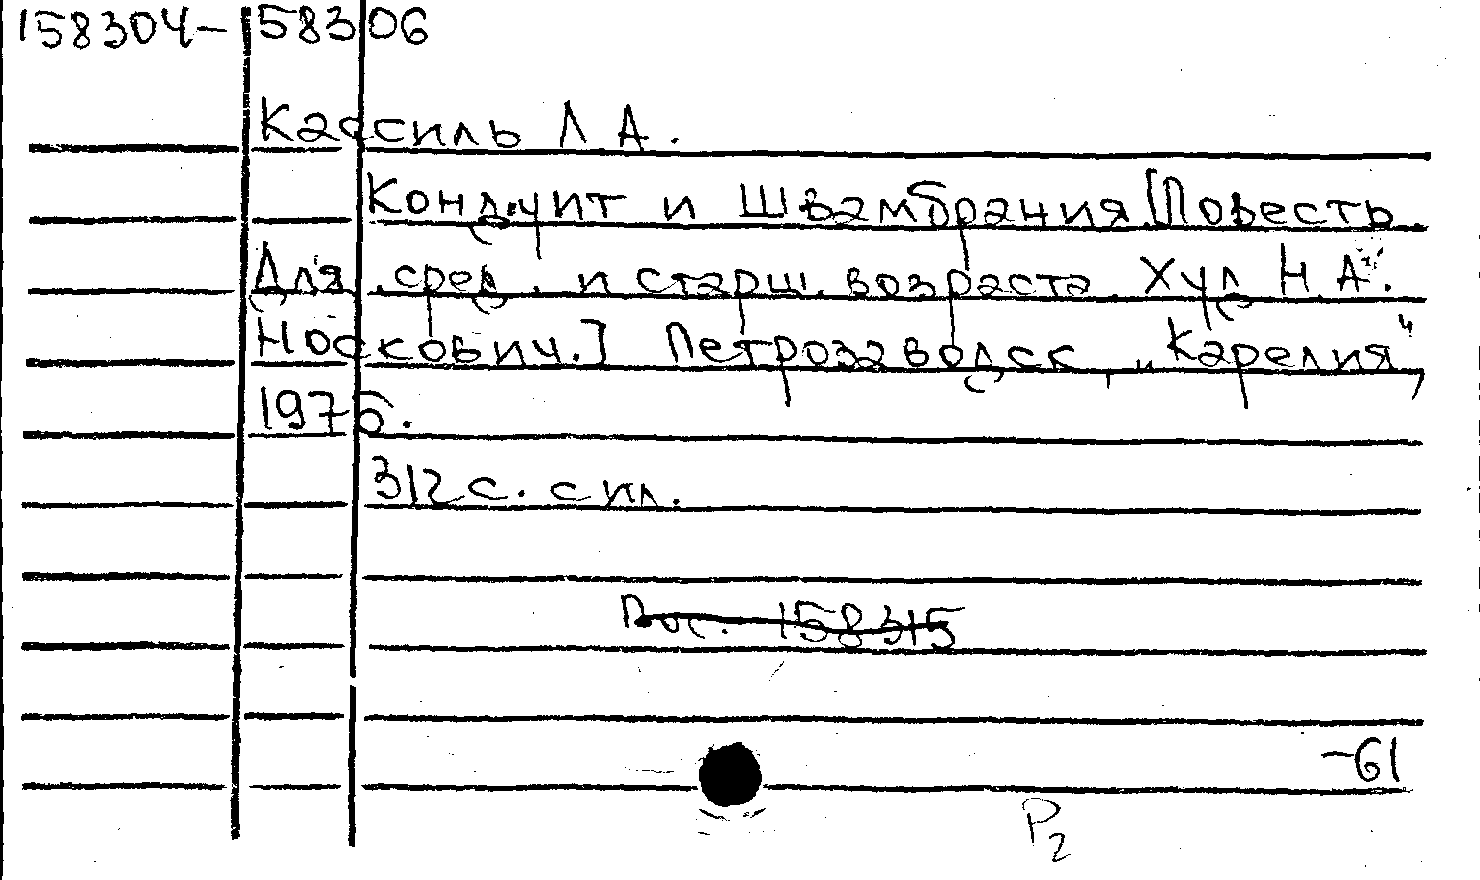 158304-158306
Кассиль Л А.
Кондуит и Швамбрания [Повесть.
Для сред. и старш. возраста. Худ Н. А.
Носкович.] Петрозаводск, „Карелия",
1975.
312 с. с ил.
158315
-61
Р2